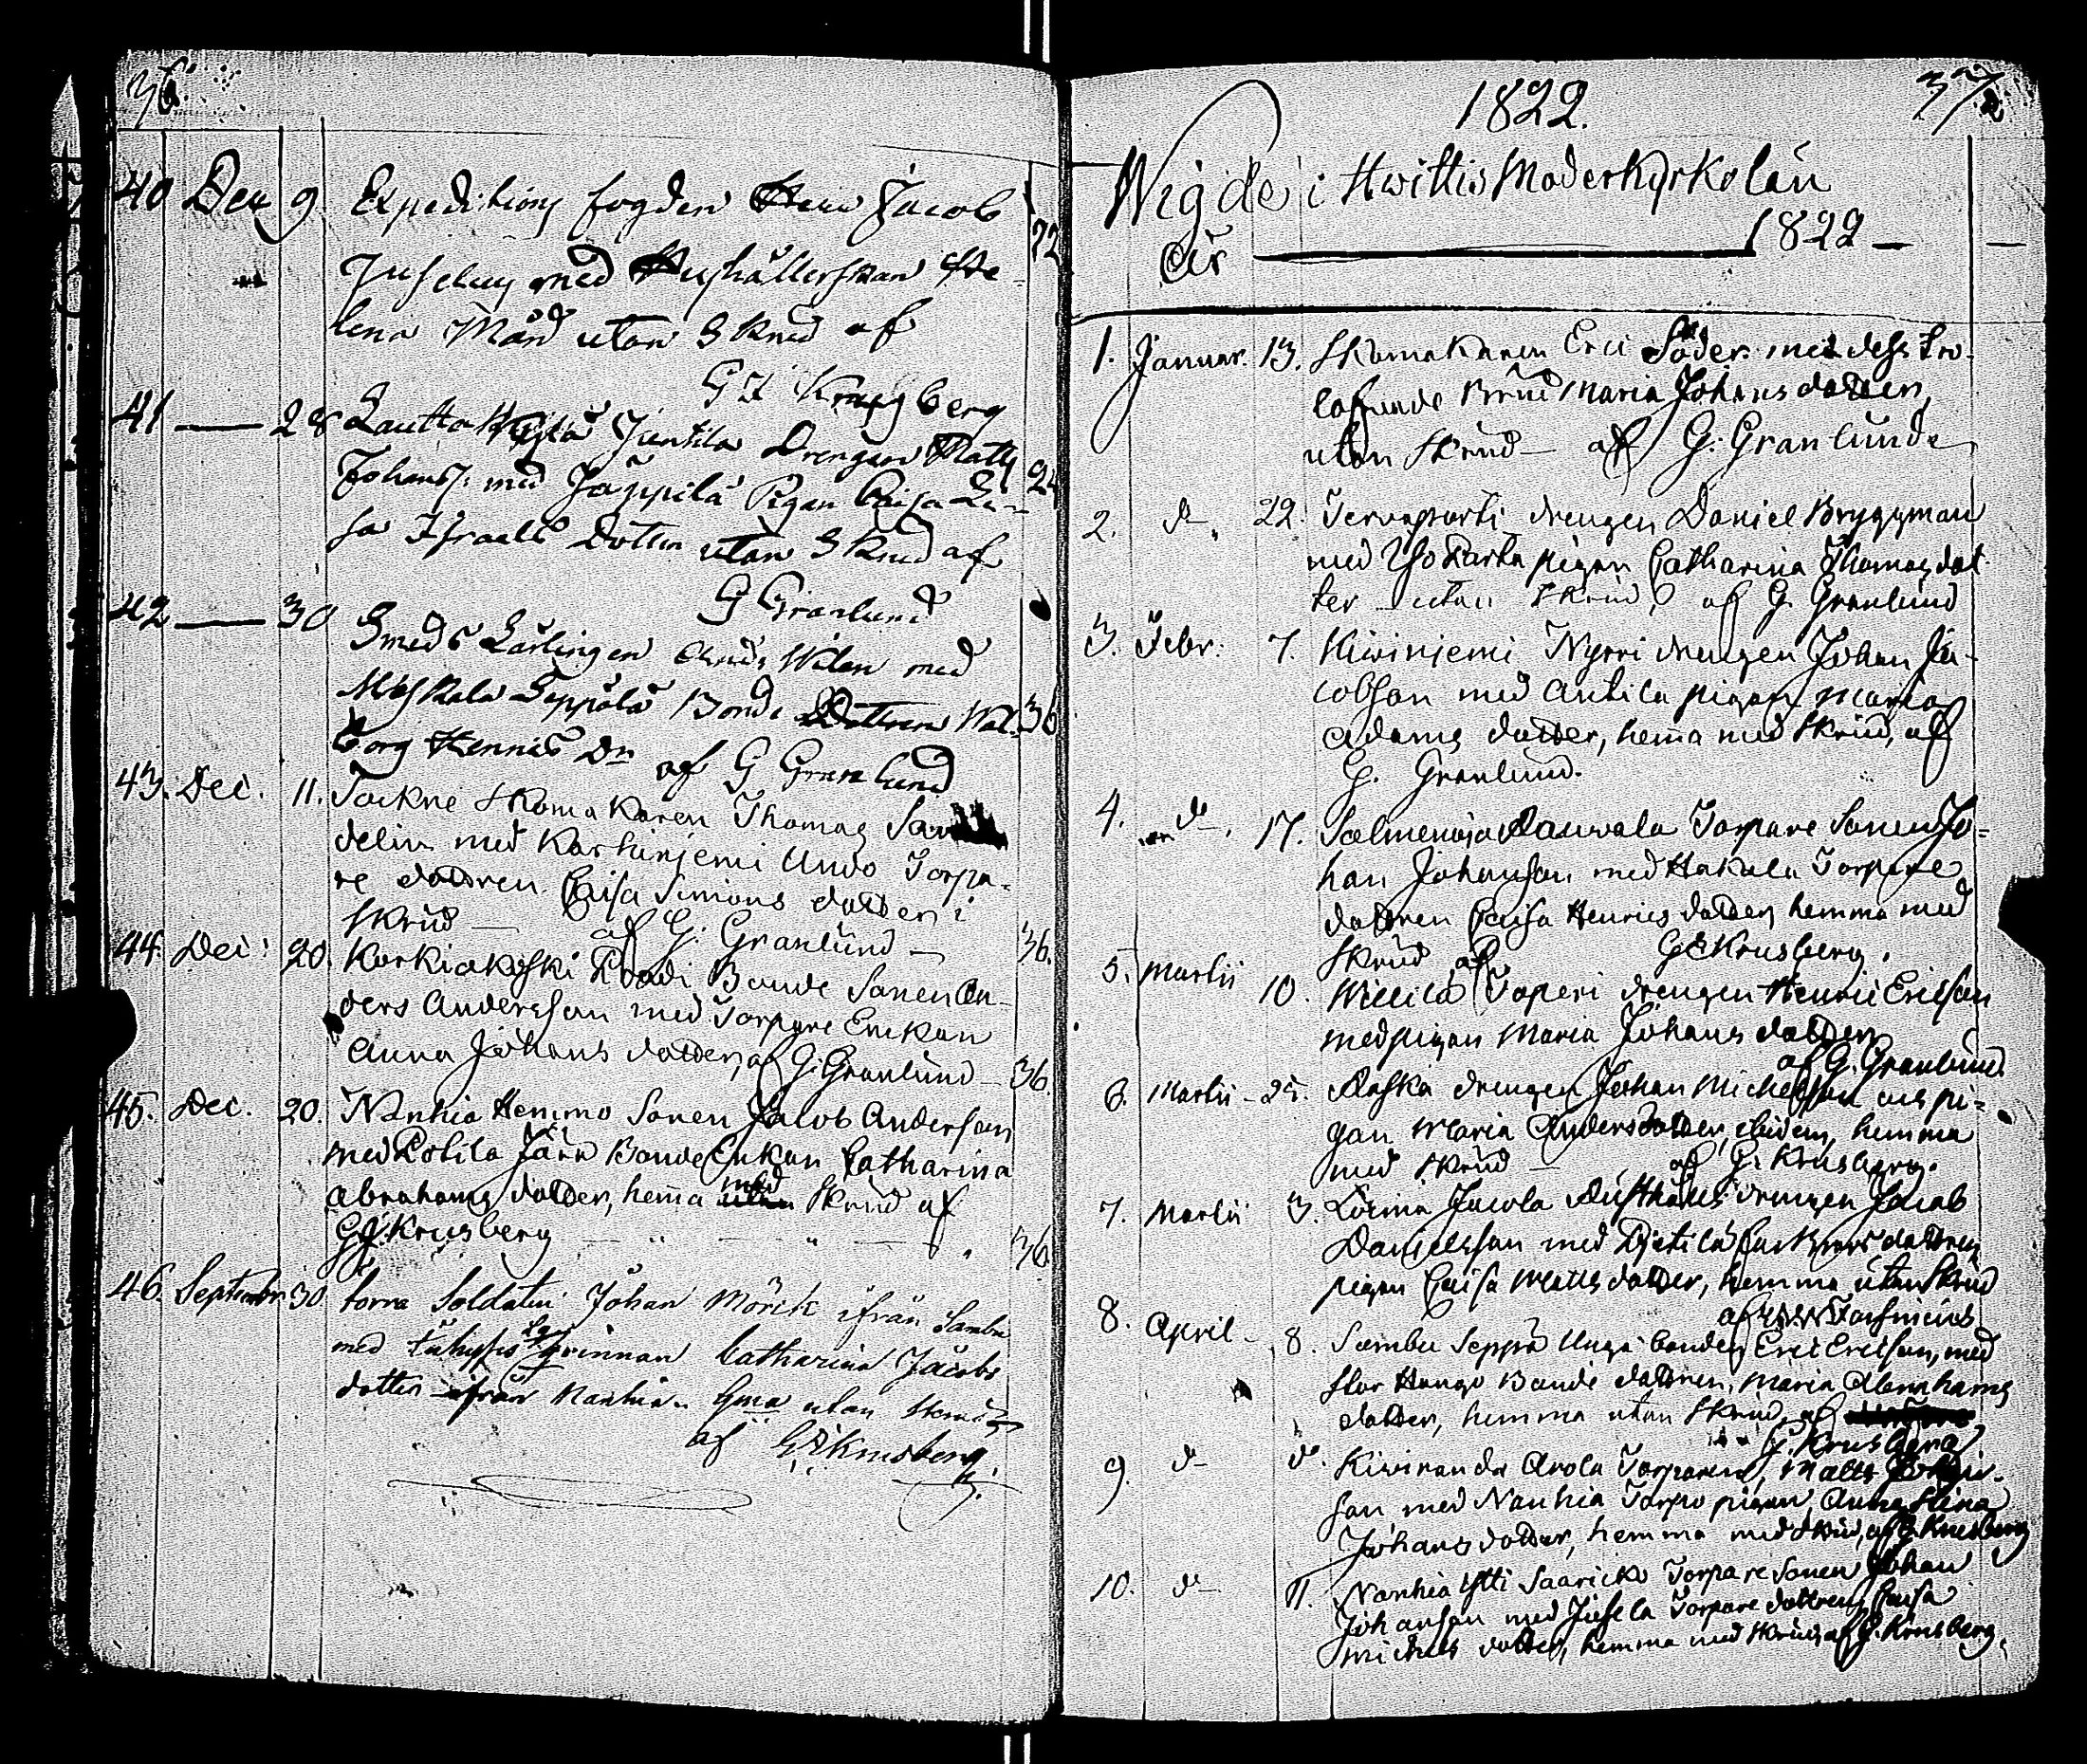 36.
40 Dec 9 Expeditions fogden Herr Jacob
Juselius med Hushållerskan He-
lena Mård utan Skrud af
72
G I Krusberg
41 — 28 Lauttakylä Junttila Drengen Matts
Johanss: med Jäppilä Pigan Caisa Lu- 24
sa Israels Dotter utan Skrud af
G Granlund
42 — 30 Smeds Lärlingen And: Wilen med
Seppälä Bonde Dottren Wal- 36
borg Hennics Dr af G Granlund
43. Dec. 11. Sockne Skomakaren Thomas San
delin med Karhinjemi Uuvo Torpa-
re dottren Caisa Simons dotter i
Skrud — af G: Granlund — 36.
44. Dec: 20. Korkiakoski Bonde Sonen An-
ders Andersson med Torpare Enkan
Anna Johans dotter, af G: Granlund — 36.
45. Dec. 20. Nanhia Hemmo Sonen Jacob Andersson
med Jära Bonde Enkan Catharina
Abrahams dotter, hemma med Skrud af
G J: Krusberg — " — " — . 36
46. Septembr 30 torra Soldaten Johan Mörck ifrån Sambu
med qvinnan Catharina Jacobs
dotter ifrån Nanhia. hma utan Skrud
af G: I: Krusberg.
1822. 37
Wigde i Hwittis Moderkyrkolän
år — 1822 —
1. Januar. 13. Skomakaren Eric Söder med dess tro-
lofvade Brud Maria Johans dotter,
utan Skrud — af G: Granlund
2. d-. 22. Tervaporti drengen Daniel Bryggman
med pigan Catharina Thomas dot-
ter — utan Skrud, af G. Granlund
3. Febr: 7. Kivinjemi Nyrri drengen Johan Ja-
cobsson med Antila pigan Maria
Adams dotter, hemma med Skrud, af
G. Granlund.
4. d-. 17. Salmenoja Torpare Sonen Jo-
han Johansson med Hakula Torpare
dottren Caisa Henrics dotter, hemma med
Skrud, af G E Krusberg.
5. Martii 10. Willilä Taperi drengen Henric Ericsson
med pigan Maria Johans dotter
af G. Granlund.
6. Martii - 25. drengen Johan Michelsson och pi-
gan Maria Anders dotter, ibidem, hemma
med Skrud — af G. Krusberg.
7. Martii 3. Loima Jacola drengen Jacob
Danielsson med dottren
pigan Caisa Matts dotter, hemma utan Skrud
af
8. April - 8. Sambu Seppä Unga bonden Eric Ericsson, med
Stor Hango Bonde dottren, Maria Abrahams
dotter, hemma utan Skrud, af
G. Krusberg.
9. d- d-. Kiviranda Arola Torparen, Matts Johan-
son med Nanhia Torpo pigan Anna Stina
Johans dotter, hemma med Skrud, af G. Krusberg
10. d- 11. Nanhia Ytti Saaricko Torpare Sonen Johan
Johansson med Jusela Torpare dottren, Caisa
Michels dotter, hemma med Skrud, af G. Krusberg.